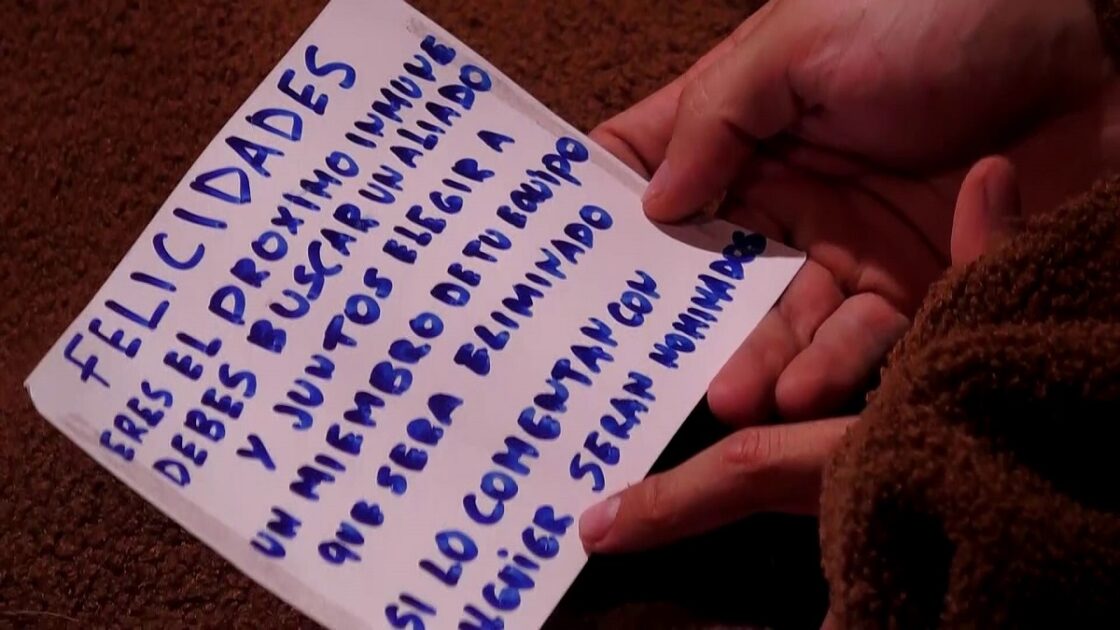 FELICIDADES
ERES EL PROXIMO INMUNE
DEBES BUSCAR UN ALIADO
Y JUNTOS ELEGIR A
UN MIEMBRO DE TU EQUIPO
QUE SERA ELIMINADO
SI LO COMENTAN CON
SERAN NOMINADOS